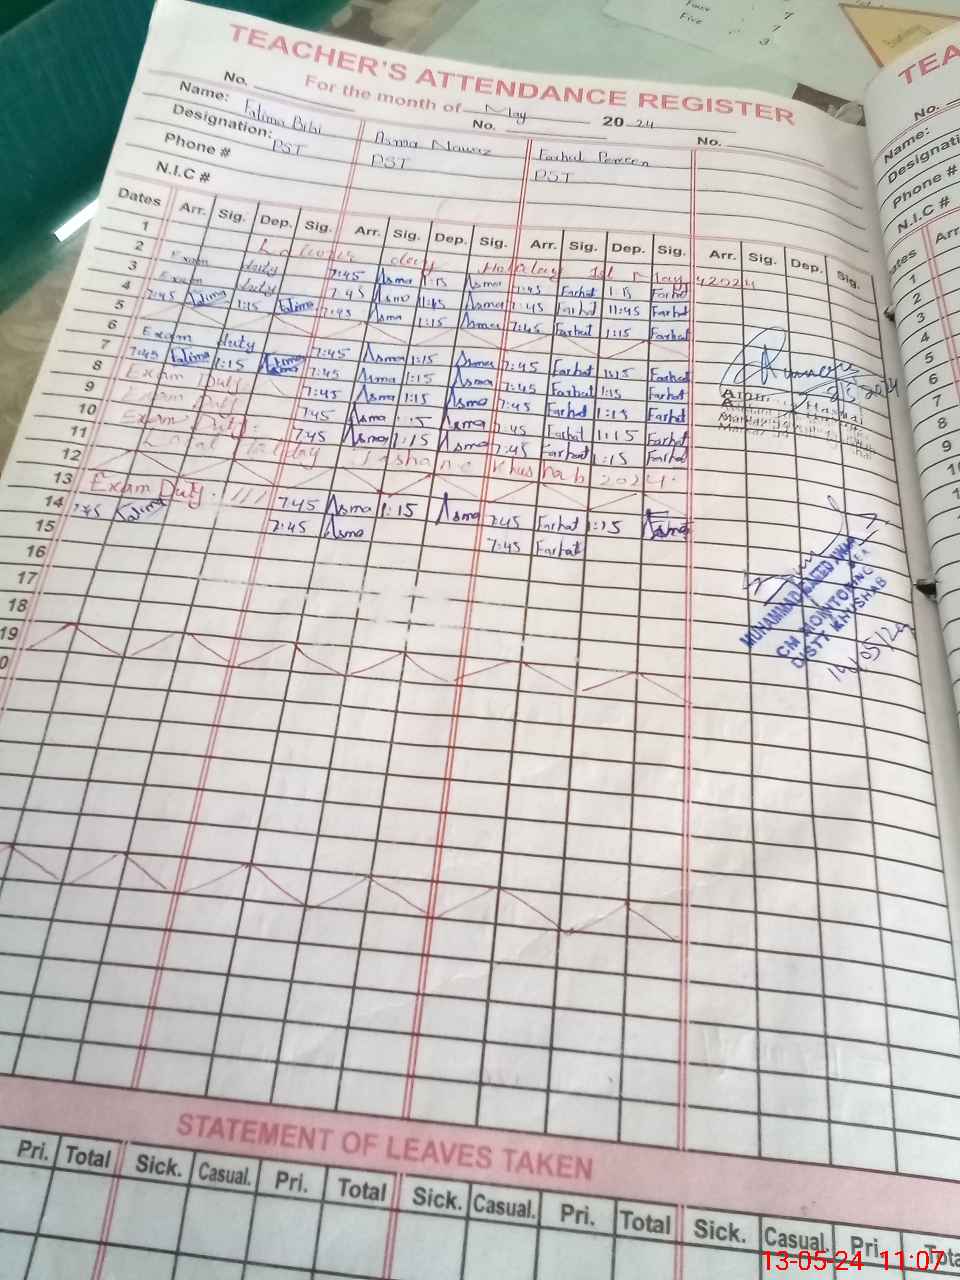 Four 7
Five 7
3
TEACHER'S ATTENDANCE REGISTER
For the month of May 2024
No. No. No.
Name: Fatima Bibi Asma Nawaz Farhat Perveen
Designation: PST PST PST
Phone #
N.I.C #
Dates Arr. Sig. Dep. Sig. Arr. Sig. Dep. Sig. Arr. Sig. Dep. Sig. Arr. Sig. Dep. Sig.
1 day Holiday 1st May 2024
2 Exam duty 7:45 Asma 1:15 Asma 7:45 Farhat 1:15 Farhat
3 Exam duty 7:45 Asma 1:45 Asma 7:45 Farhat 11:45 Farhat
4 7:45 Fatima 1:15 Fatima 7:45 Asma 1:15 Asma 7:45 Farhat 1:15 Farhat
5
6 Exam duty 7:45 Asma 1:15 Asma 7:45 Farhat 1:15 Farhat
7 7:45 Fatima 1:15 Fatima 7:45 Asma 1:15 Asma 7:45 Farhat 1:15 Farhat
8 Exam Duty 7:45 Asma 1:15 Asma 7:45 Farhat 1:15 Farhat
9 Exam Duty 7:45 Asma 1:15 Asma 7:45 Farhat 1:15 Farhat
10 Exam Duty 7:45 Asma 1:15 Asma 7:45 Farhat 1:15 Farhat
11 Local Holiday Jashane Khushab 2024.
12
13 Exam Duty. 7:45 Asma 1:15 Asma 7:45 Farhat 1:15 Asma
14 7:45 Fatima 7:45 Asma 7:45 Farhat
15
16
17
18
19
0
MUHAMMAD SAEED
CM MONITORING
DISTT KHUSHAB
14/05/24
STATEMENT OF LEAVES TAKEN
Pri. Total Sick. Casual. Pri. Total Sick. Casual. Pri. Total Sick. Casual. Pri. Tota
TEA
No.
Name:
Designati
Phone #
N.I.C #
ates Arr
1
2
3
4
5
6
7
8
9
10
11
12
13
14
13-05-24 11:07